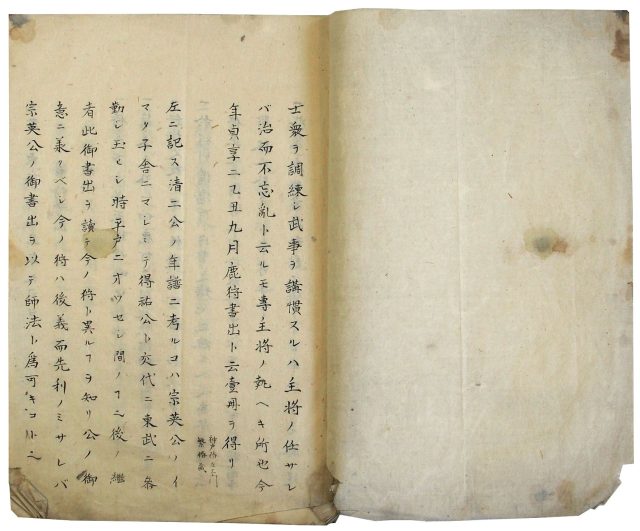 士衆ヲ調練シ武事ヲ講慣スルハ主將ノ任サレ
バ治而不忘亂ト云ルモ専ノ主將ノ執ヘキ所也今
年貞享二乙丑九月鹿狩書出ト云壹冊ヲ得リ
左ニ記ス清二公ノ年譜ニ考ルコハ宗英公ノイ
マタ子舎ニマシ〳〵テ得祐公ト交代ニ東武ニ参
勤シ玉ヒシ時平戸ニオワセシ間ノ ニ後ノ繼
者此御書出ヲ讀テ今ノ狩ト異ルヿヲ知リ公ノ御
意ニ兼クベシ今ノ狩ハ後義而先利ノミサレバ
宗英公ノ御書出ヲ以テ師法ト爲可キコ